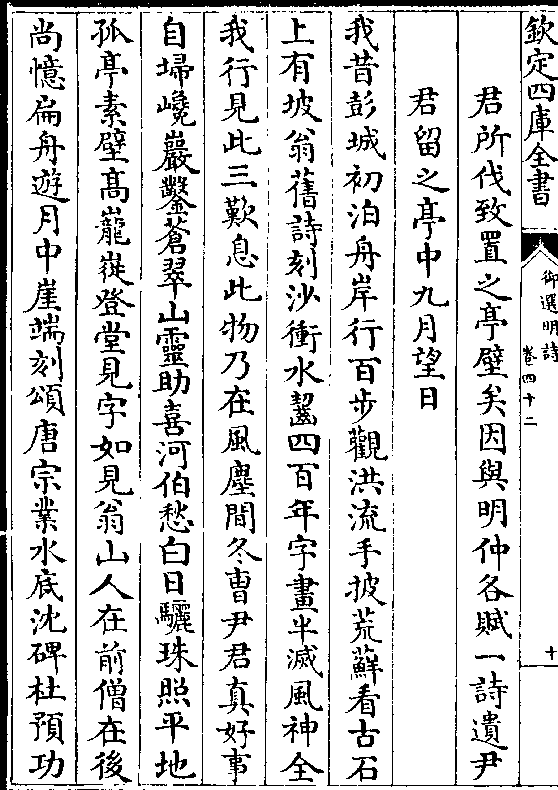 欽定四庫全書
御選明詩
卷四十二
十
君所伐致置之亭壁矣因與明仲各賦一詩遺尹
君留之亭中九月望日
我昔彭城初泊舟岸行百步觀洪流手披荒蘚看古石
上有坡翁舊詩刻沙衝水齧四百年字畫半滅風神全
我行見此三歎息此物乃在風塵間冬曹尹君真好事
自埽巉巖鑿蒼翠山靈助喜河伯愁白日驪珠照平地
孤亭素壁髙巃嵸登堂見字如見翁山人在前僧在後
尚憶扁舟遊月中崖端刻頌唐宗業水底沈碑杜預功